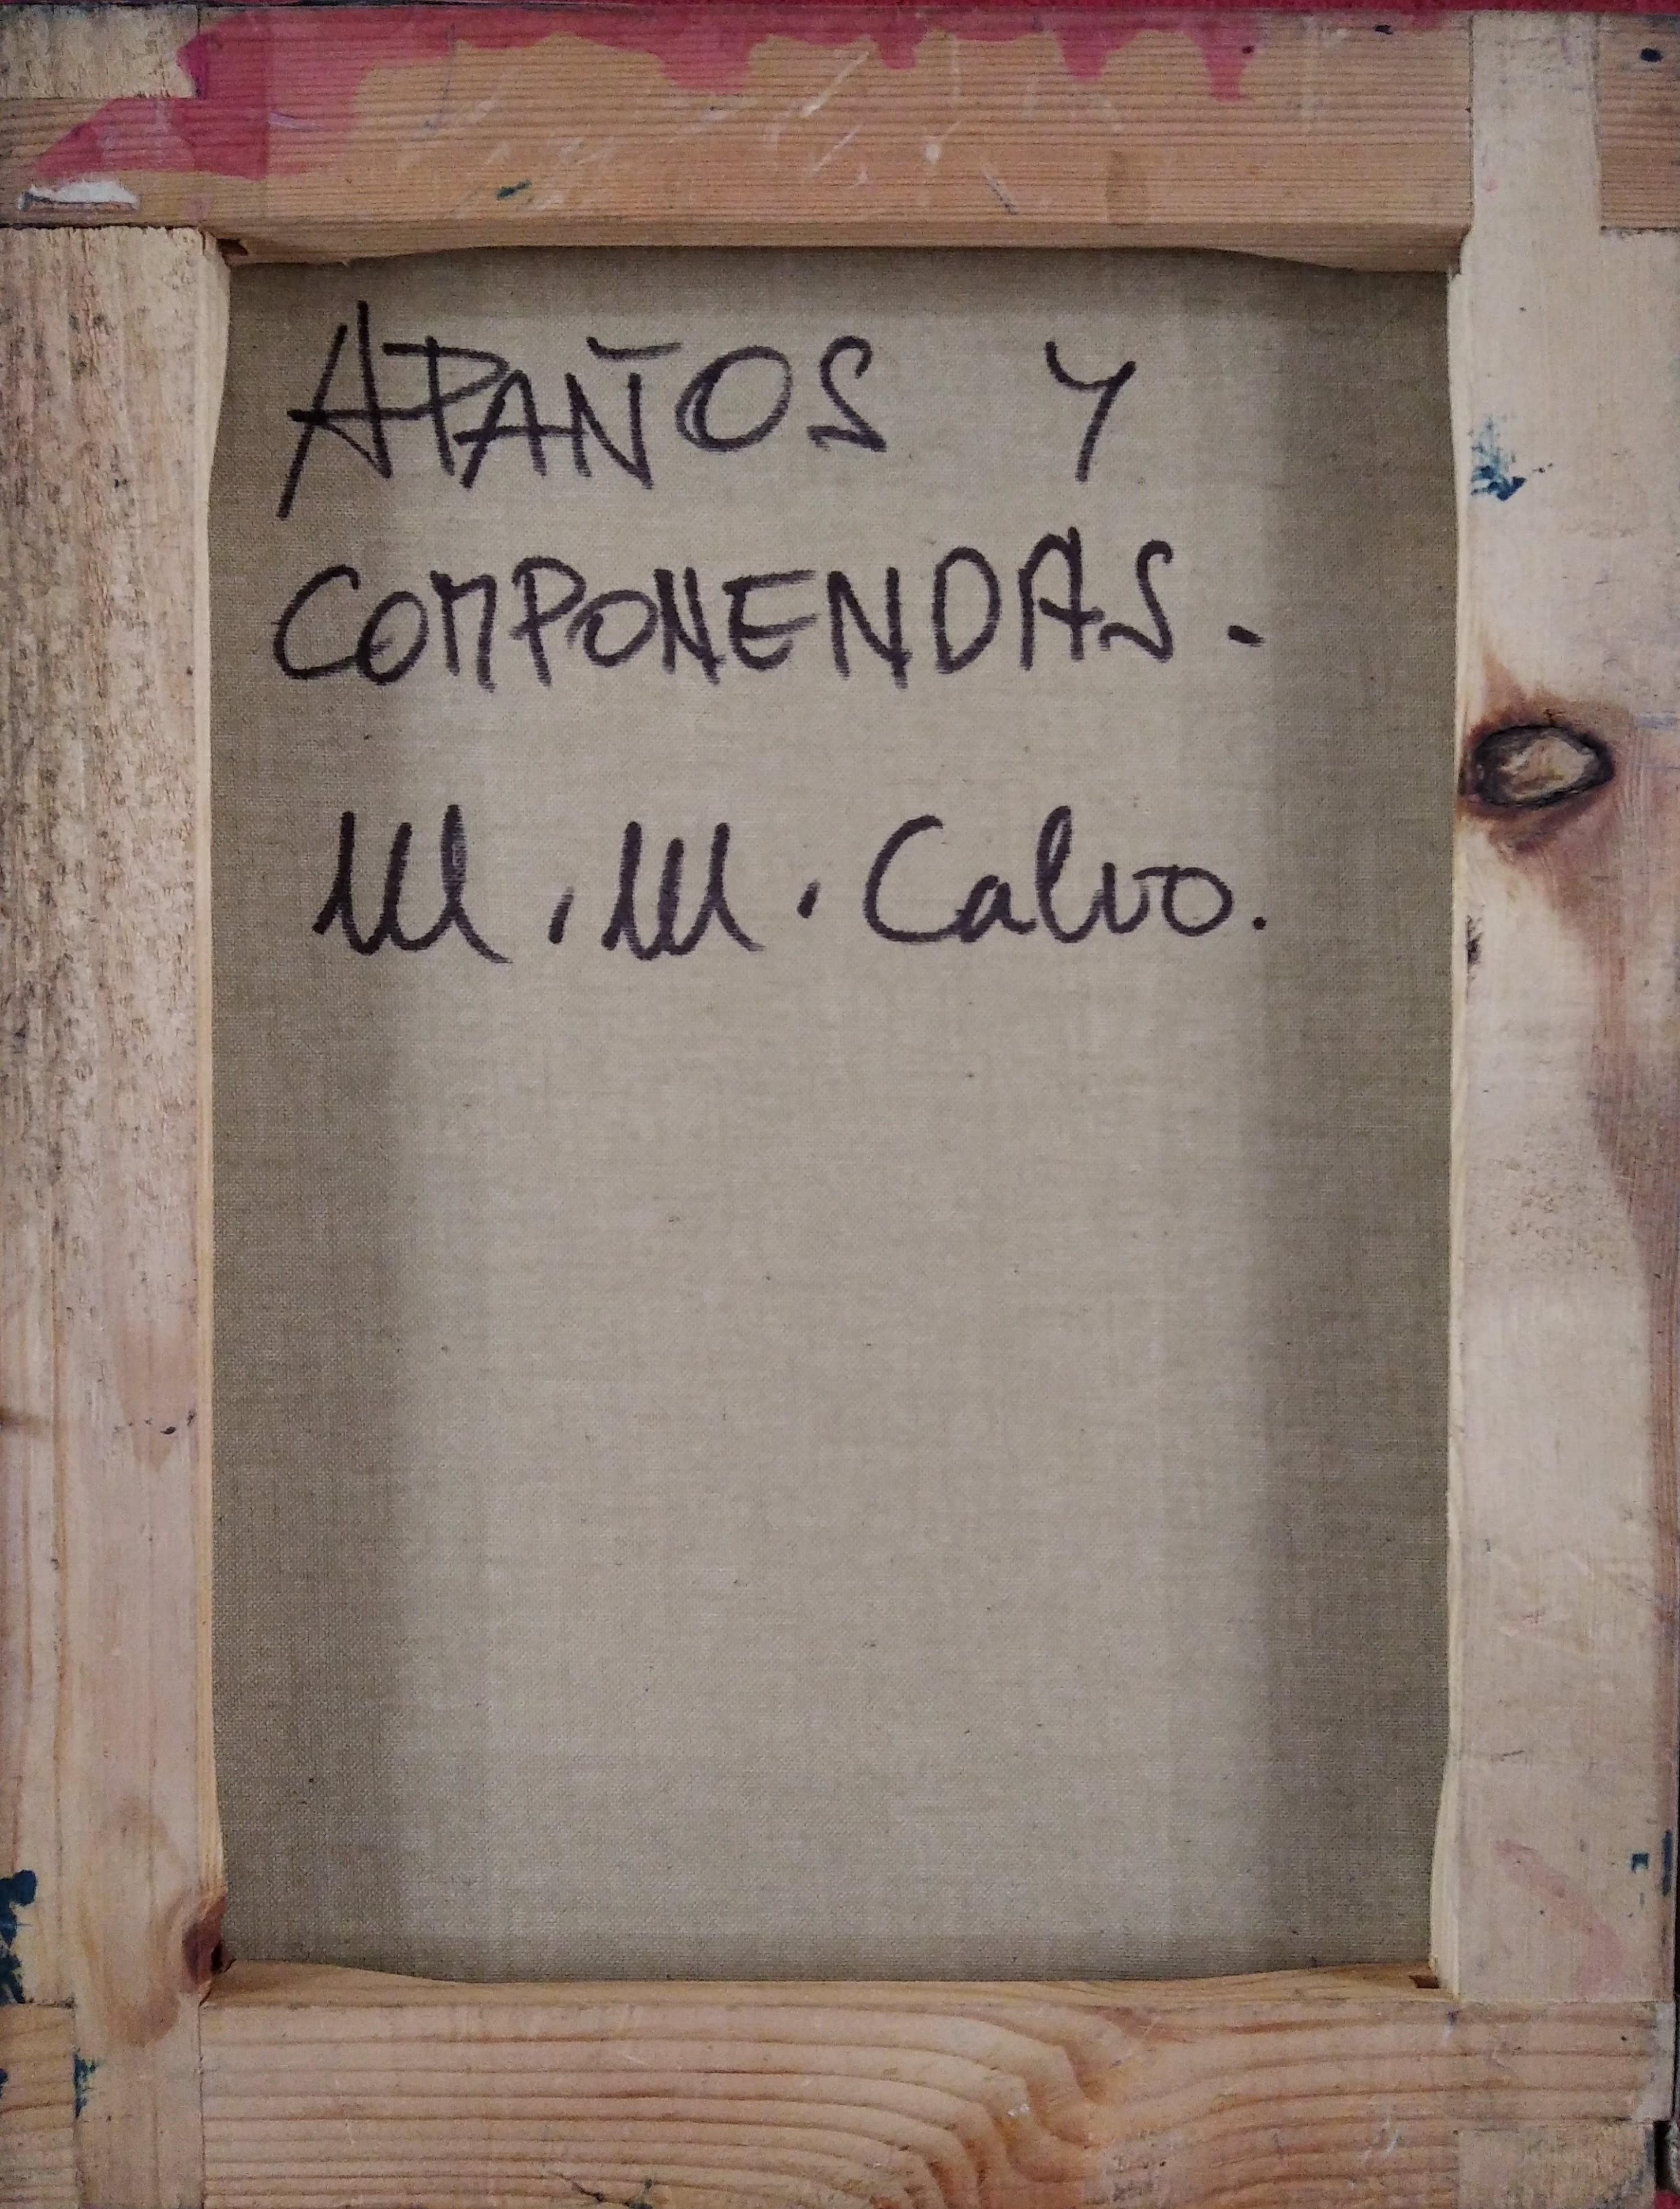 APAÑOS Y
COMPONENDAS.
M. M. Calvo.